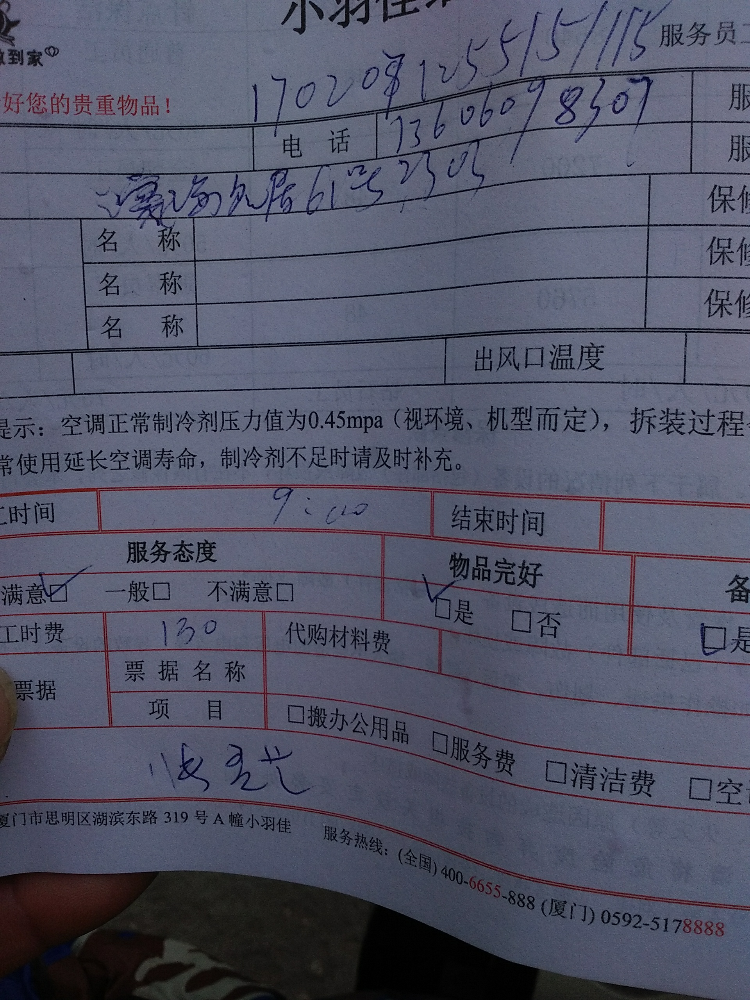 小羽佳
到家
服务员工
170208125515/115
好您的贵重物品！
服
电 话 13606098307
服
61号2303
保修
名 称
保修
名 称
保修
名 称
出风口温度
提示：空调正常制冷剂压力值为0.45mpa（视环境、机型而定），拆装过程
常使用延长空调寿命，制冷剂不足时请及时补充。
工时间 9:00 结束时间
服务态度 物品完好 备
满意☑ 一般□ 不满意□ ☑是 □否 □是
工时费 130 代购材料费
票据 票据名称
项 目 □搬办公用品 □服务费 □清洁费 □空
厦门市思明区湖滨东路 319 号 A 幢小羽佳 服务热线：(全国) 400-6655-888 (厦门) 0592-5178888